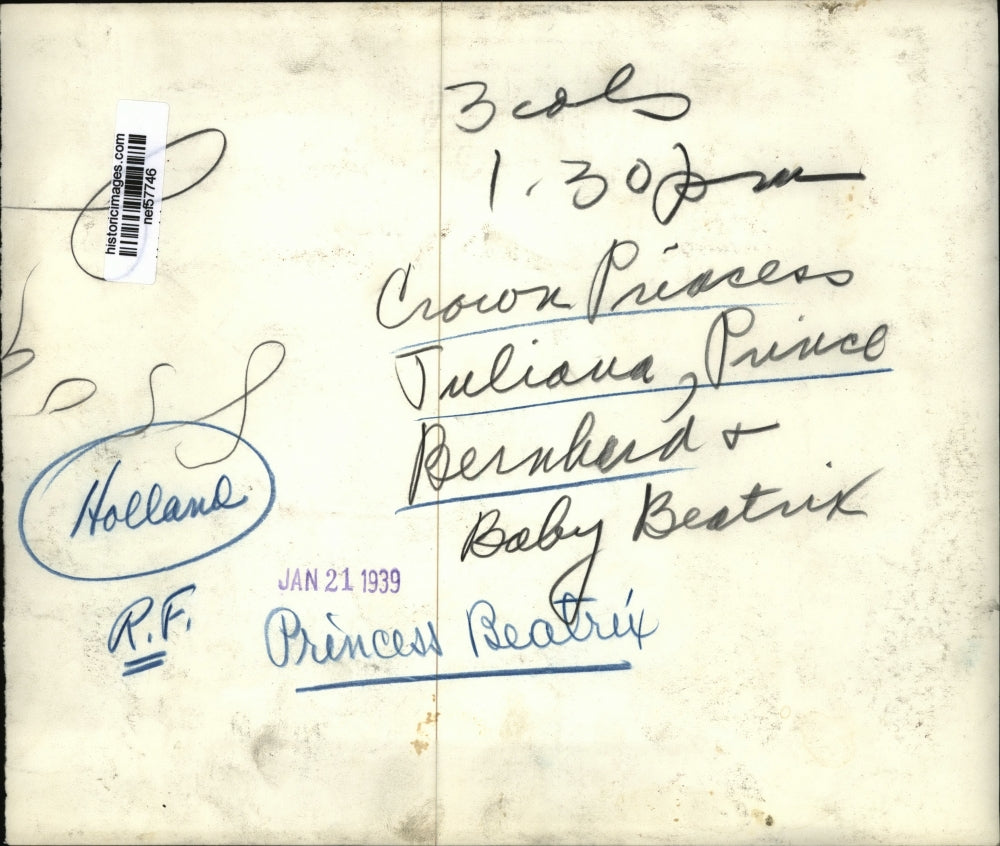 3 cols
1.30 pm
historicimages.com
nef57746
Crown Princess
Juliana, Prince
Bernhard +
Baby Beatrix
Holland
JAN 21 1939
R.F.
Princess Beatrix